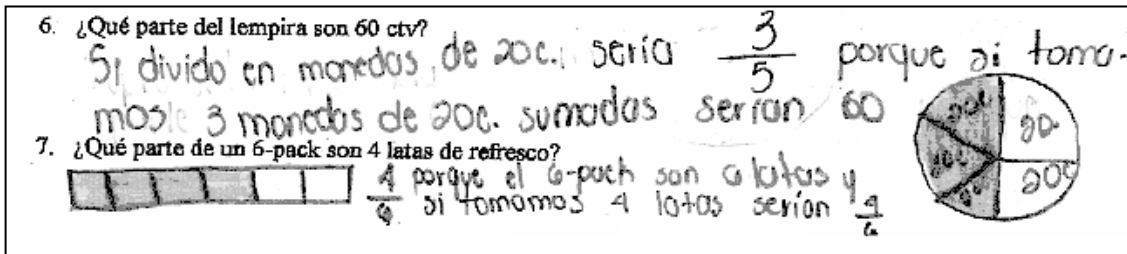 6. ¿Qué parte del lempira son 60 ctv?
Si divido en monedas, de 20c., sería 3/5 porque si toma-
mos 3 monedas de 20c. sumadas serían 60
20c 20 20c 20c 20c
7. ¿Qué parte de un 6-pack son 4 latas de refresco?
4/6 porque el 6-pack son 6 latas y
si tomamos 4 latas serían 4/6